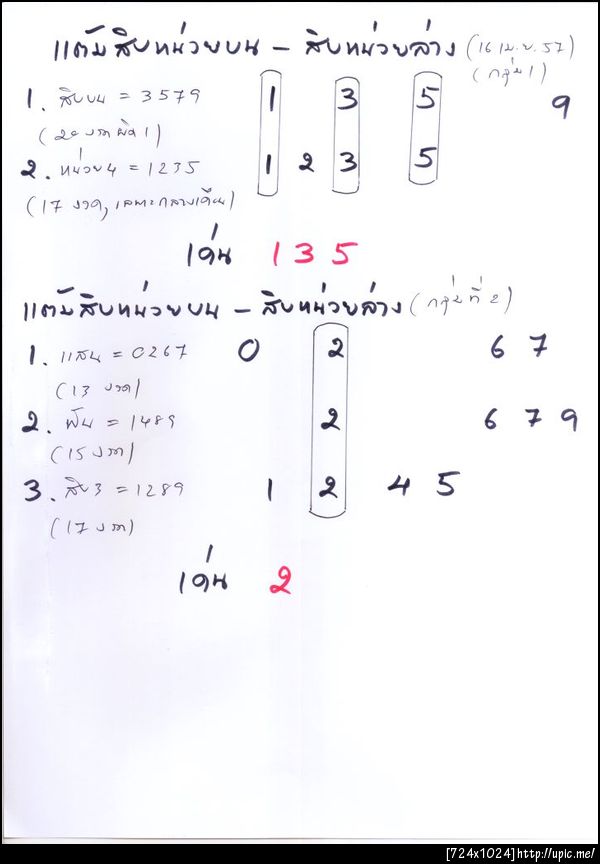 แต้มสิบหน่วยบน - สิบหน่วยล่าง (16 เม.ย. 57)
(กลุ่ม 1)
1. สิบบน = 3579 1 3 5 9
(20 งวด ผิด 1)
2. หน่วย4 = 1235 1 2 3 5
(17 งวด, เฉพาะกลางเดือน)
เด่น 1 3 5
แต้มสิบหน่วยบน - สิบหน่วยล่าง (กลุ่มที่ 2)
1. แสน = 0267 0 2 6 7
(13 งวด)
2. พัน = 1489 2 6 7 9
(15 งวด)
3. สิบ3 = 1289 1 2 4 5
(17 งวด)
เด่น 2
[724x1024]http://upic.me/